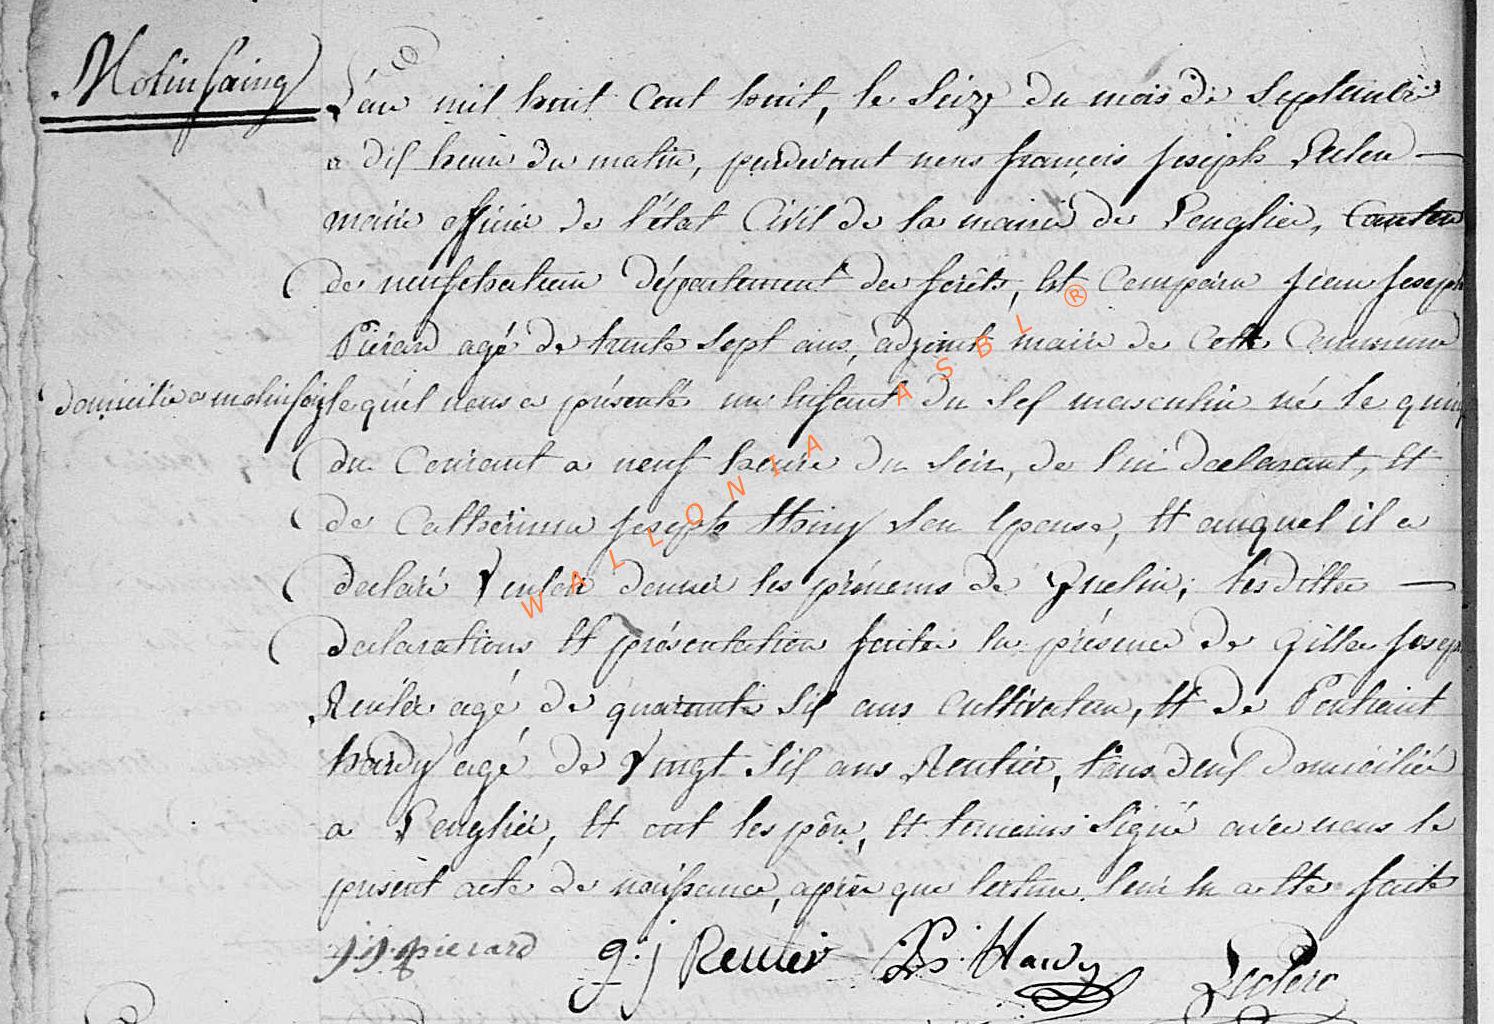 Molinfaing
L'an mil huit cent huit, le seize du mois de septembre
a dix heure du matin, pardevant nous françois joseph
maire officier de l'état Civil de la mairie de Longlier, Canton
de neufchateau département des forêts, est Comparu jean joseph
Piérard agé de trente sept ans, adjoint maire de Cette Commune
domicilié a molinfaing lequél nous a présenté un enfant du sex masculin né le quinz
du Courant a neuf heure du soir, de lui declarant, et
de Catherinne joseph thiry son épouse, et auquel il a
declaré Vouloir donner les prénoms de ; lesdittes
declarations et présentation faites en présence de Gille joseph
agé de quarante six ans Cultivateur, et de
hardy agé de Vingt six ans Rentier, tous deux domicilié
a Longlier, et ont les pér, et temoins signé avec nous le
present acte de naissance, après que lecture leur en a ete faite
j j pierard g. j Renier Hardy Leclere
WALLONIA ASBL ®